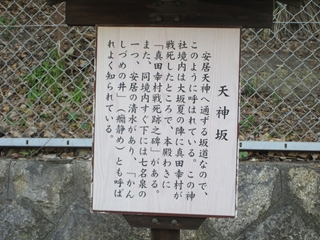 天神坂
安居天神へ通ずる坂道なので、
このように呼ばれている。この神
社境内は大坂夏の陣に真田幸村が
戦死したところで、本殿わきに
「真田幸村戦死跡之碑」がある。
また、同境内すぐ下には七名泉の
一つ、安居の清水があり、「かん
しづめの井」（癇静め）とも呼ば
れよく知られている。